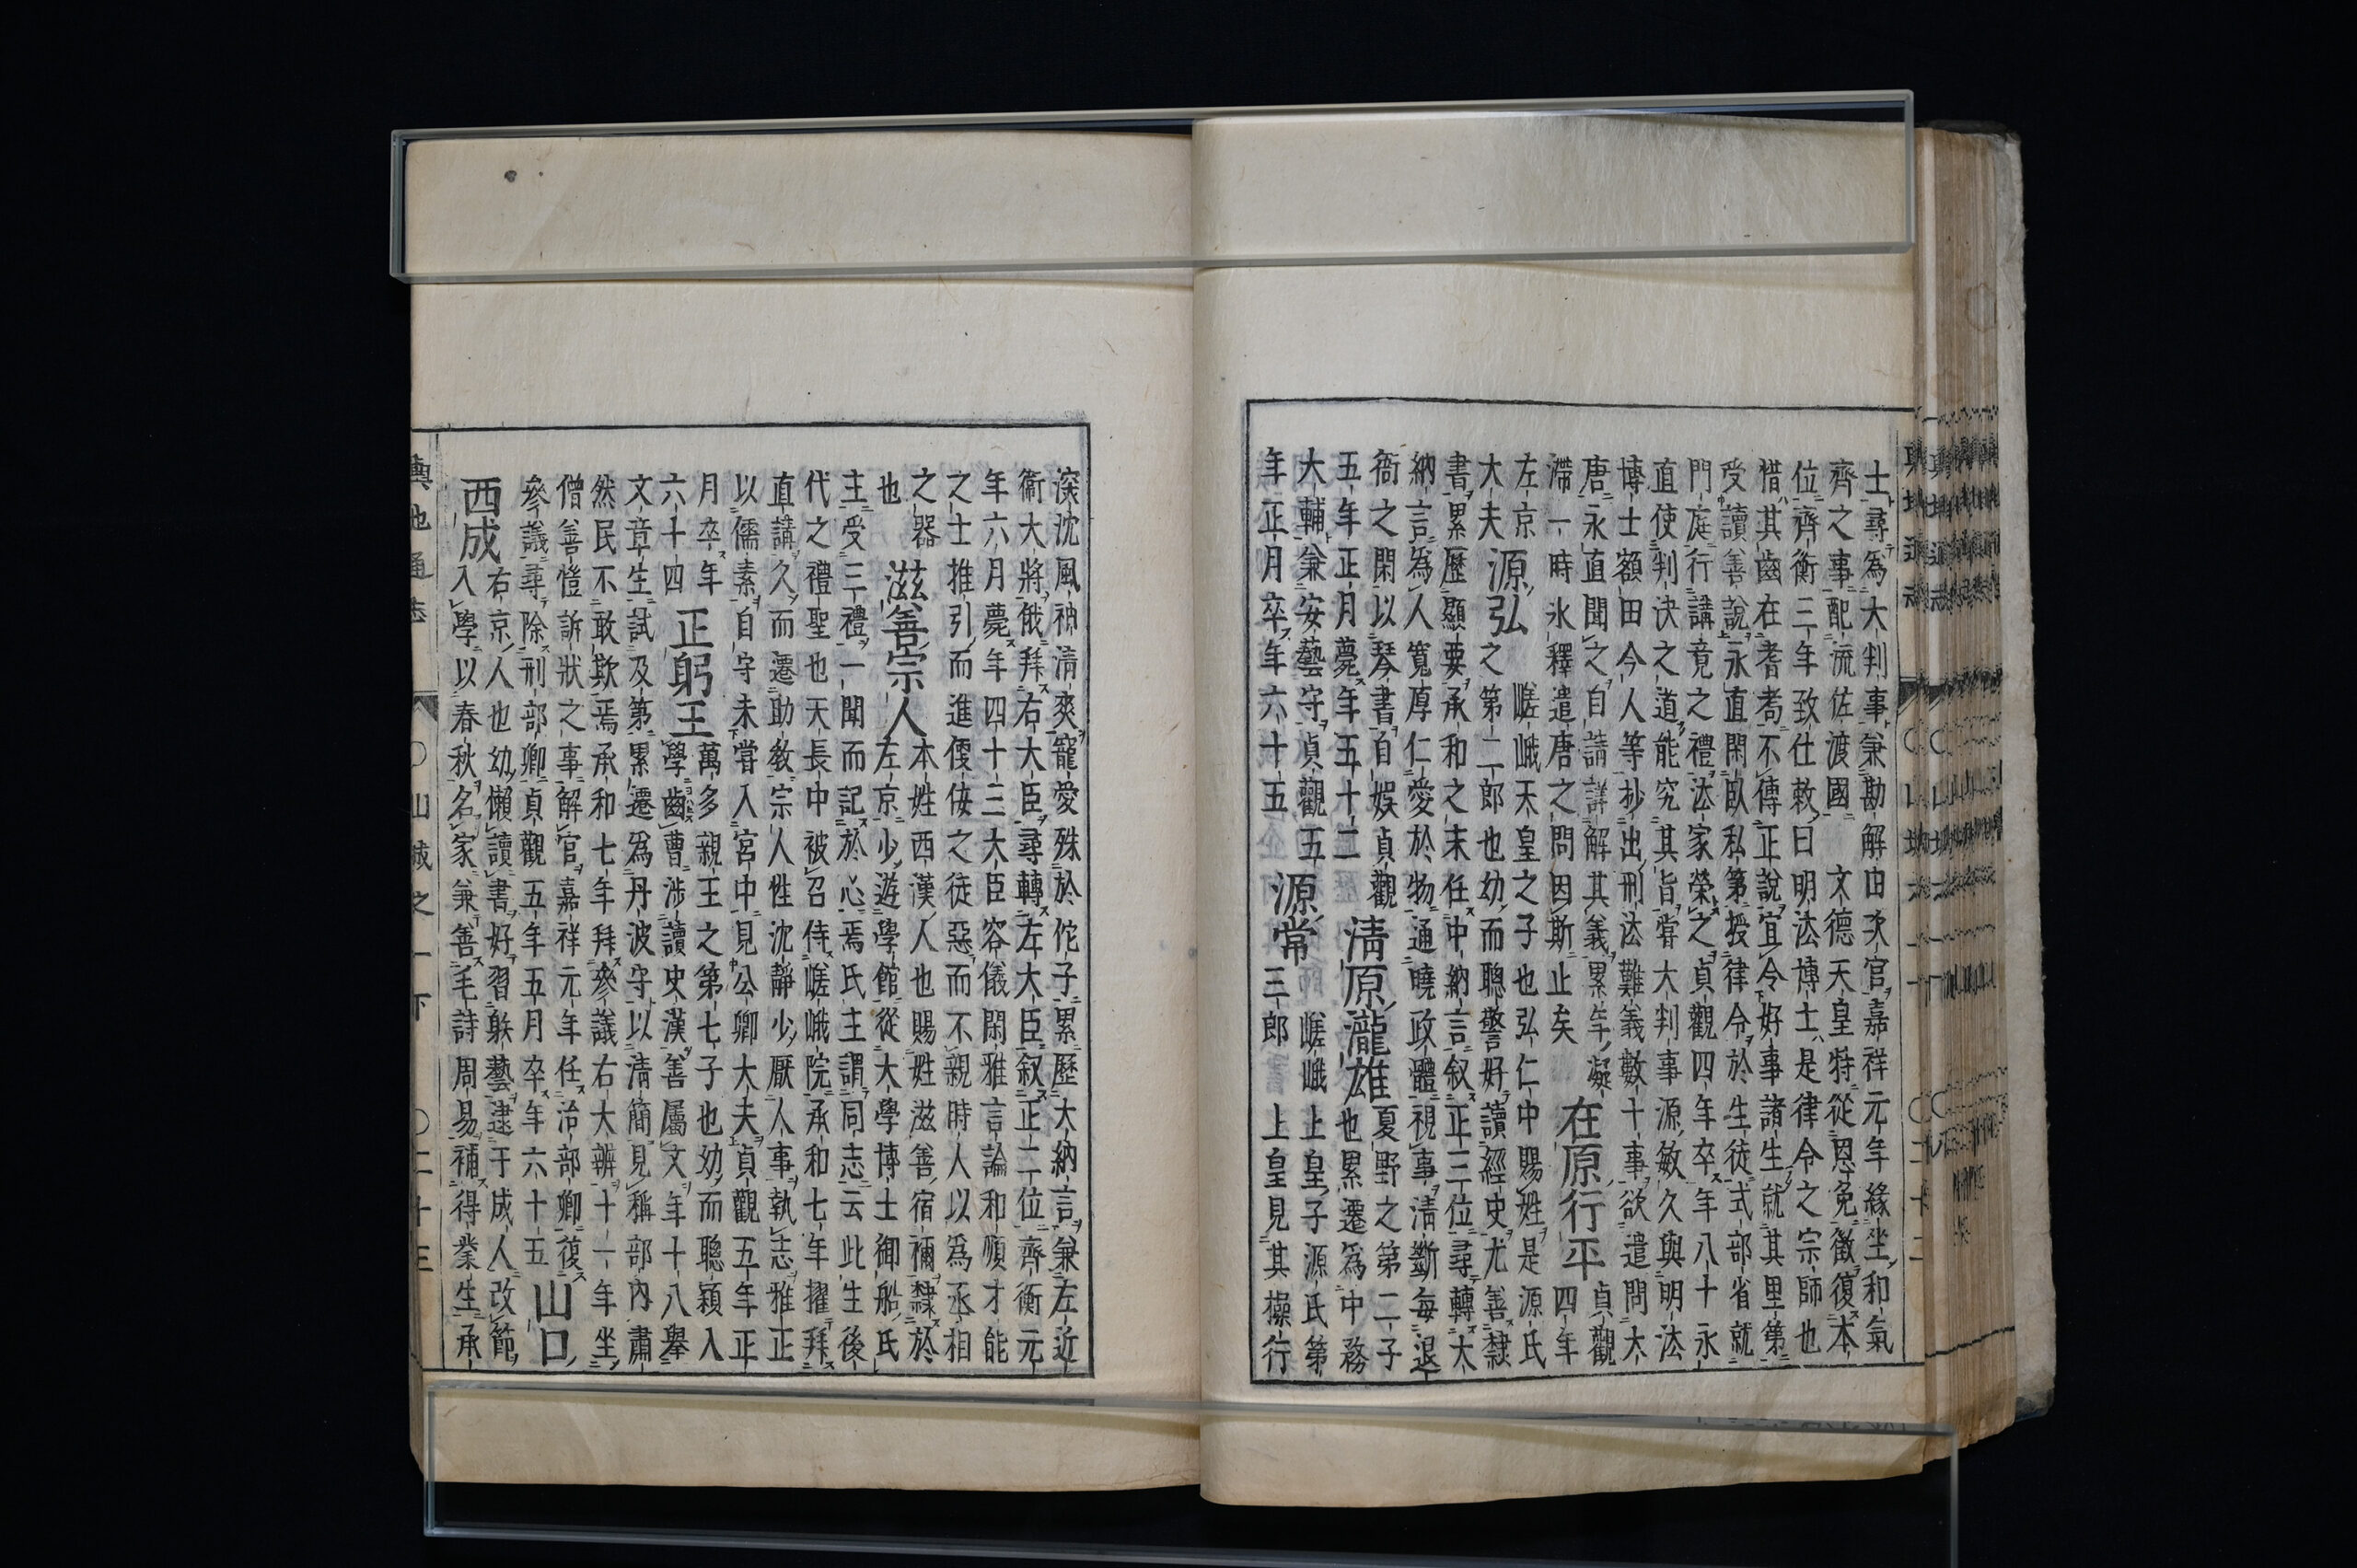 士尋為大判事兼勘解由次官嘉祥元年緣坐和氣
齊之事配流佐渡國 文德天皇特從恩免徵復本
位齊衡三年致仕敕曰明法博士是律令之宗師也
惜其齒在耆耇不傳正說宜令好事諸生就其里第
受讀善說永直閑臥私第授律令於生徒式部省就
門庭行講竟之禮法家榮之貞觀四年卒年八十永
直使判決之道能究其旨嘗大判事源敏久與明法
博士額田今人等抄出刑法難義數十事欲遣問大
唐永直聞之自請詳解其義累年凝
滯一時氷釋遣唐之問因斯止矣
在原行平
貞觀
四年
左京
大夫
源弘
嵯峨天皇之子也弘仁中賜姓是源氏
之第二郎也幼而聰警好讀經史尤善隸
書累歷顯要承和之末任中納言叙正三位尋轉大
納言為人寬厚仁愛於物通曉政體視事淸斷每退
衙之閑以琴書自娛貞觀
五年正月薨年五十二
淸原瀧雄
夏野之第二子
也累遷為中務
大輔兼安藝守貞觀五
年正月卒年六十五
源常
嵯峨上皇子源氏第
三郎上皇見其操行
深沈風神淸爽寵愛殊於佗子累歷大納言兼左近
衞大將俄拜右大臣尋轉左大臣叙正二位齊衡元
年六月薨年四十三大臣容儀閑雅言論和順才能
之士推引而進便佞之徒惡而不親時人以為丞相
之器
也
滋善宗人
本姓西漢人也賜姓滋善宿禰隸於
左京少遊學館從大學博士御船氏
主受三禮一聞而記於心焉氏主謂同志云此生後
代之禮聖也天長中被召侍嵯峨院承和七年擢拜
直講久而遷助敎宗人性沈靜少厭人事執志雅正
以儒素自守未嘗入宮中見公卿大夫貞觀五年正
月卒年
六十四
正躬王
萬多親王之第七子也幼而聰穎入
學齒曹涉讀史漢善屬文年十八舉
文章生試及第累遷為丹波守以淸簡見稱部內肅
然民不敢欺焉承和七年拜參議右大辨十一年坐
僧善愷訴狀之事解官嘉祥元年任治部卿復
參議尋除刑部卿貞觀五年五月卒年六十五
山口
西成
右京人也幼懶讀書好習躰藝逮于成人改節
入學以春秋名家兼善毛詩周易補得業生承
輿地通志
〇山城之一下
〇二十三